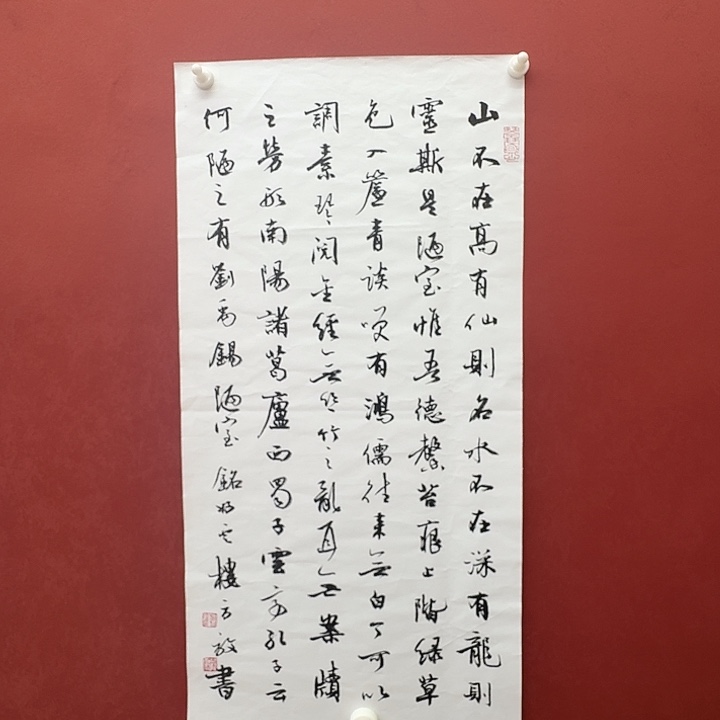 山不在高有仙則名水不在深有龍則
靈斯是陋室惟吾德馨苔痕上階綠草
色入簾青談笑有鴻儒往來無白丁可以
調素琴閱金經無絲竹之亂耳無案牘
之勞形南陽諸葛廬西蜀子雲亭孔子云
何陋之有劉禹錫陋室銘樓方書